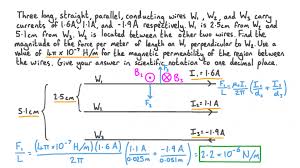 Three long, straight, parallel, conducting wires W₁, W₂, and W₃ carry
currents of 1.6A, 1.1A, and -1.9A respectively. W₁ is 2.5cm from W₂ and
5.1cm from W₃. W₂ is located between the other two wires. Find the
magnitude of the force per meter of length on W₁ perpendicular to W₂. Use a
value of 4π × 10⁻⁷ H/m for the magnetic permeability of the region between
the wires. Give your answer in scientific notation to one decimal place.
B₂ B₃ F₂ I₁ = 1.6A
W₁
2.5cm F₃
5.1cm W₂ I₂ = 1.1A
W₃ I₃ = -1.9A
F₁/L = μI₁/2π (I₂/d₂ + I₃/d₃)
F₁/L = (4π × 10⁻⁷ H/m)(1.6A)/2π (1.1A/0.025m + -1.9A/0.051m) = 2.2 × 10⁻⁶ N/m